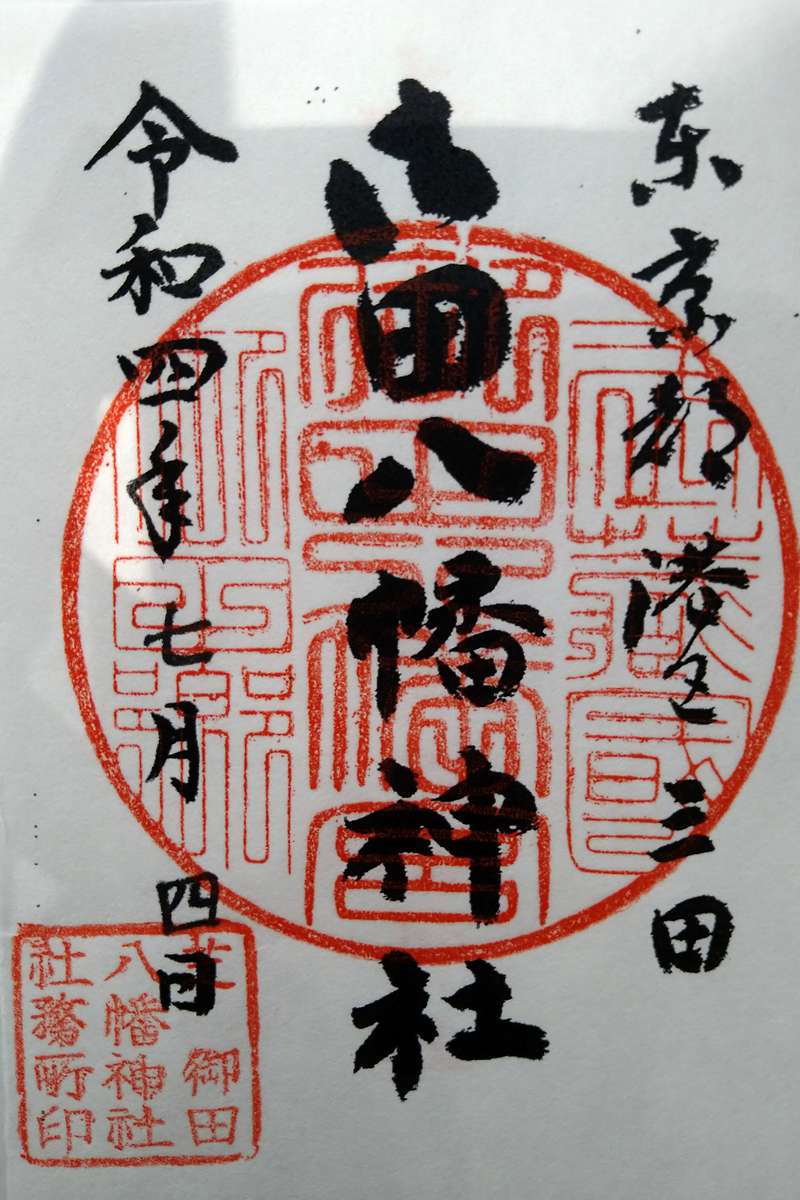 東京都 港区 三田
御田八幡神社
令和四年 七月 四日
芝 御田
八幡神社
社務所印